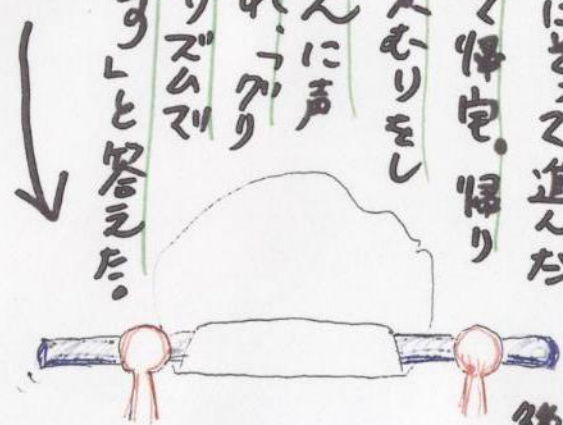 にそって進んだ
く帰宅。帰り
むりをし
んに声
れ、「グリ
リズムマリ
す」と答えた。